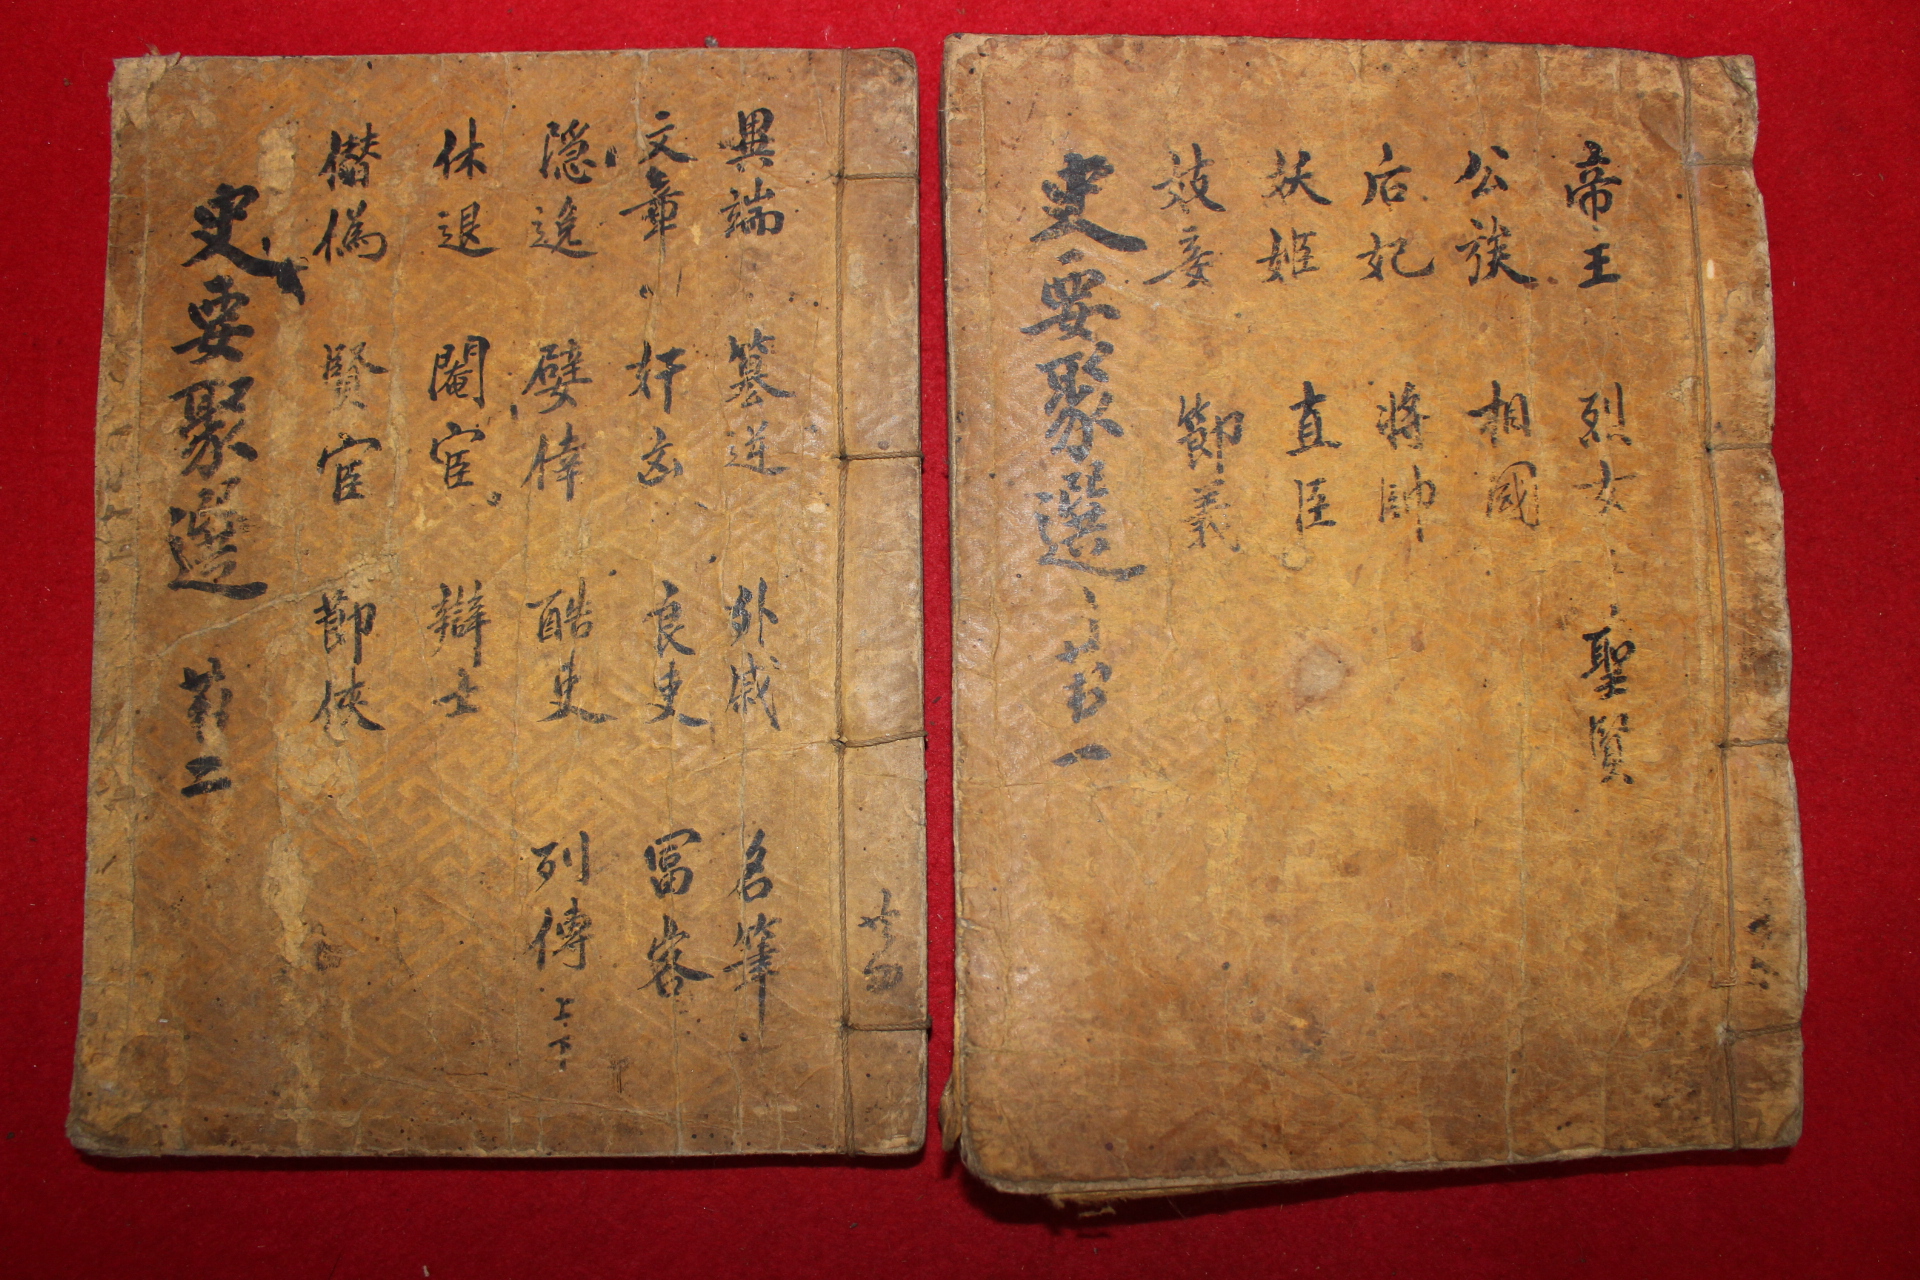 帝王 烈女 聖賢
公族 相國
后妃 將帥
妖姬 直臣
妓妾 節義
史要聚選 苐一
異端 簒逆 外戚 名筆
文章 奸凶 良吏 冨客
隠逸 嬖倖 酷吏 列傳 上下
休退 閹宦 辯士
僭僞 賢宦 節俠
史要聚選 苐二